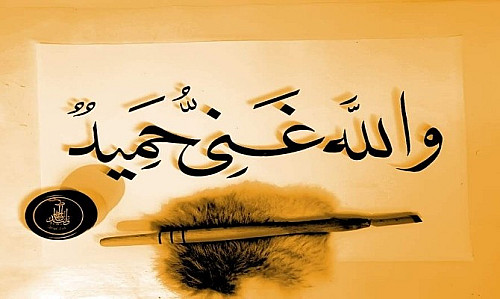 والله غَنِىٌّ حَمِيدٌ